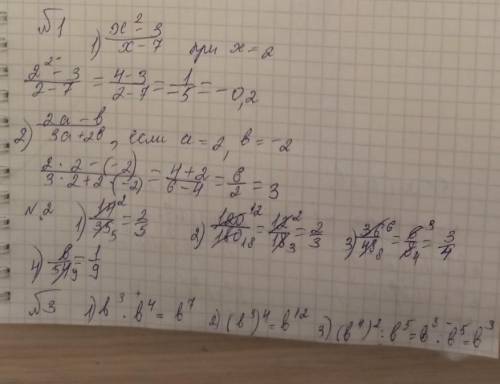 №1
1) (x² - 3)/(x - 7) при x = 2
(2² - 3)/(2 - 7) = (4 - 3)/(2 - 7) = 1/(-5) = -0,2
2) (2a - b)/(3a + 2b), если a = 2, b = -2
(2 · 2 - (-2))/(3 · 2 + 2 · (-2)) = (4 + 2)/(6 - 4) = 6/2 = 3
№2 1) 14²/35₅ = 2/5 2) 120¹²/180₁₈ = 12²/18₃ = 2/3 3) 36⁶/48₈ = 6³/8₄ = 3/4
4) 6/54₉ = 1/9
№3 1) b³ · b⁴ = b⁷ 2) (b³)⁴ = b¹² 3) (b⁴)² : b⁵ = b⁸ : b⁵ = b³